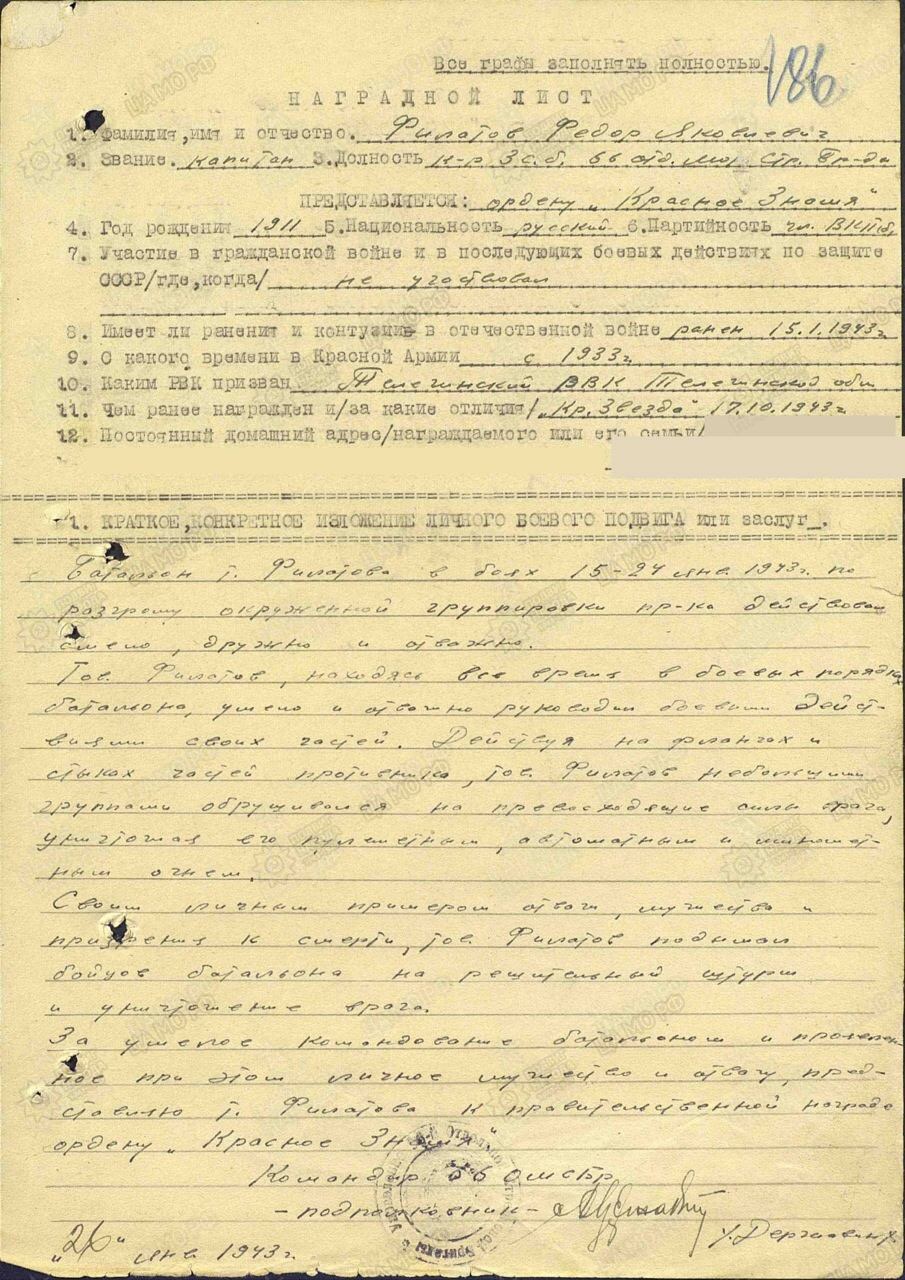 186
Все графы заполнять полностью.
НАГРАДНОЙ ЛИСТ
1. Фамилия,имя и отчество. Филатов Федор Яковлевич
2. Звание. капитан 3.Долность к-р 3 с.б. 66 отд. мор стр. бр-ды
ПРЕДСТАВЛЯЕТСЯ: ордену „Красное Знамя"
4. Год рождения 1911 5.Национальность русский 6.Партийность чл. ВКП(б)
7. Участие в гражданской войне и в последующих боевых действиях по защите
СССР/где,когда/ не участвовал
8. Имеет ли ранения и контузиив в отечественной войне ранен 15.1.1943г
9. С какого времени в Красной Армии с 1933г.
10. Каким РВК призван Телегинский ВВК обл
11. Чем ранее награжден и/за какие отличия/ „Кр. Звезда" 17.10.1943г
12. Постоянный домашний адрес/награждаемого или его семьи/
1. КРАТКОЕ,КОНКРЕТНОЕ ИЗЛОЖЕНИЕ ЛИЧНОГО БОЕВОГО ПОДВИГА или заслуг_.
Батальон т. Филатова в боях 15-24 янв 1943г. по
разгрому окруженной группировки пр-ка действовал
смело, дружно и отважно.
Тов. Филатов, находясь все время в боевых порядках
батальона, умело и отважно руководил боевыми дейст-
виями своих частей. Действуя на флангах и
стыках частей противника, тов. Филатов небольшими
группами обрушивался на превосходящие силы врага,
уничтожая его пулеметным, автоматным и миномет-
ным огнем.
Своим личным примером отваги, мужества и
призрения к смерти, тов. Филатов поднимал
бойцов батальона на решительный штурм
и уничтожение врага.
За умелое командование батальоном и проявлен-
ное при этом личное мужество и отвагу, пред-
ставляю т. Филатова к правительственной награде
ордену „Красное Знамя"
Командир 66 омстр
- подполковник -
„26" янв 1943г.